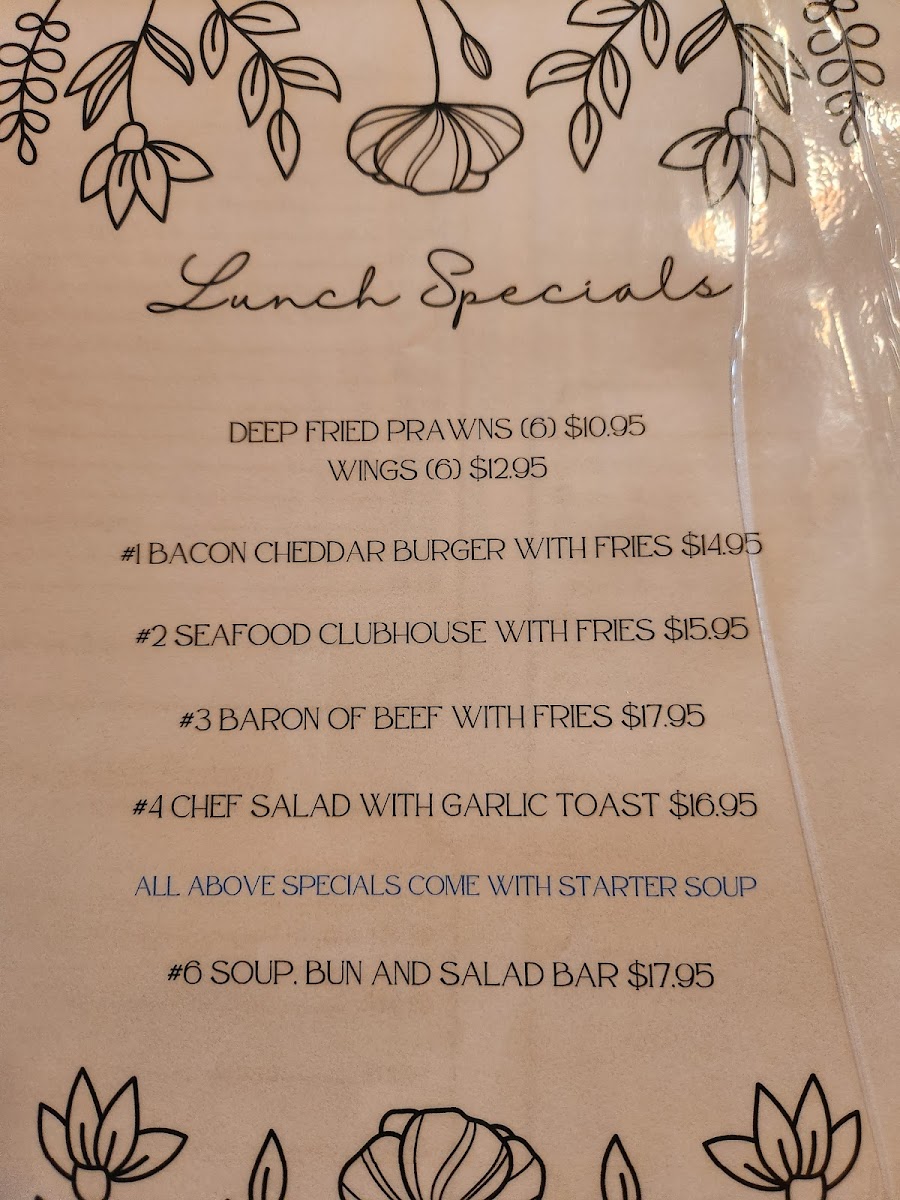 Lunch Specials
DEEP FRIED PRAWNS (6) $10.95
WINGS (6) $12.95
#1 BACON CHEDDAR BURGER WITH FRIES $14.95
#2 SEAFOOD CLUBHOUSE WITH FRIES $15.95
#3 BARON OF BEEF WITH FRIES $17.95
#4 CHEF SALAD WITH GARLIC TOAST $16.95
ALL ABOVE SPECIALS COME WITH STARTER SOUP
#6 SOUP. BUN AND SALAD BAR $17.95